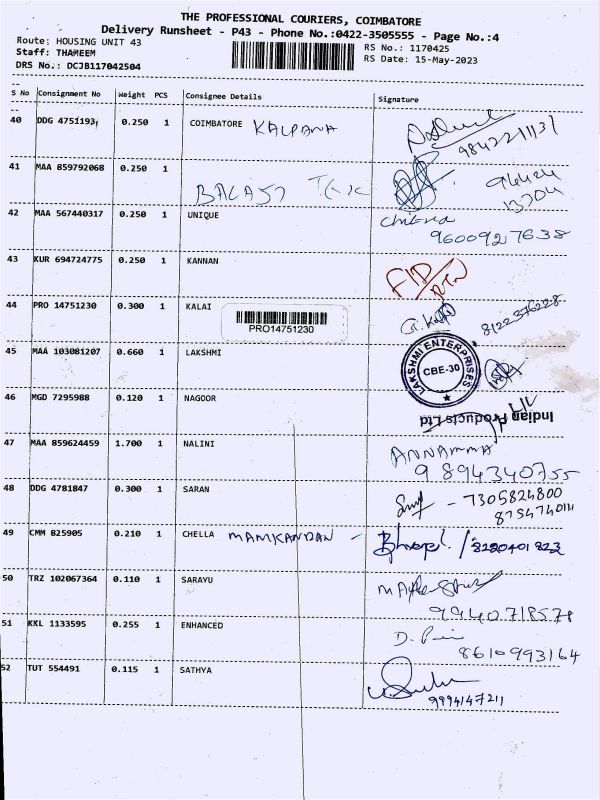 THE PROFESSIONAL COURIERS, COIMBATORE
Delivery Runsheet - P43 - Phone No.:0422-3505555 - Page No.:4
Route: HOUSING UNIT 43
RS No.: 1170425
Staff: THAMEEM
RS Date: 15-May-2023
DRS No.: DCJB117042504
S No Consignment No Weight PCS Consignee Details Signature
40 DDG 4751193 0.250 1 COIMBATORE KALPANA
9842211131
41 MAA 859792068 0.250 1
BALAJI
42 MAA 567440317 0.250 1 UNIQUE Chitra
9600927638
43 KUR 694724775 0.250 1 KANNAN
44 PRO 14751230 0.300 1 KALAI
PRO14751230
8122376228
45 MAA 103081207 0.660 1 LAKSHMI
LAKSHMI ENTERPRISES
CBE-30
46 MGD 7295988 0.120 1 NAGOOR
Indian Products Ltd
47 MAA 859624459 1.700 1 NALINI ANNAMMA
9894340755
48 DDG 4781847 0.300 1 SARAN - 7305824800
49 CMM 825905 0.210 1 CHELLA MANIKANDAN - /8220401823
50 TRZ 102067364 0.110 1 SARAYU
9940718578
51 KKL 1133595 0.255 1 ENHANCED
8610993164
52 TUT 554491 0.115 1 SATHYA
9994147211